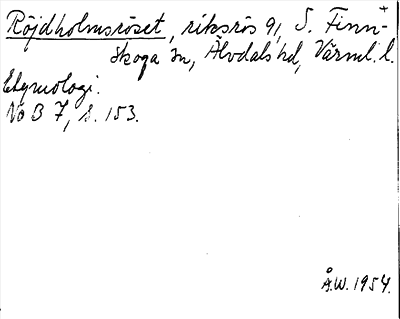 Röjdholmsröset, riksrös 91, S. Finn-
skoga sn, Älvdals hd, Värml. l.
Etymologi.
NoB 7, s. 153.
Å.W. 1954.